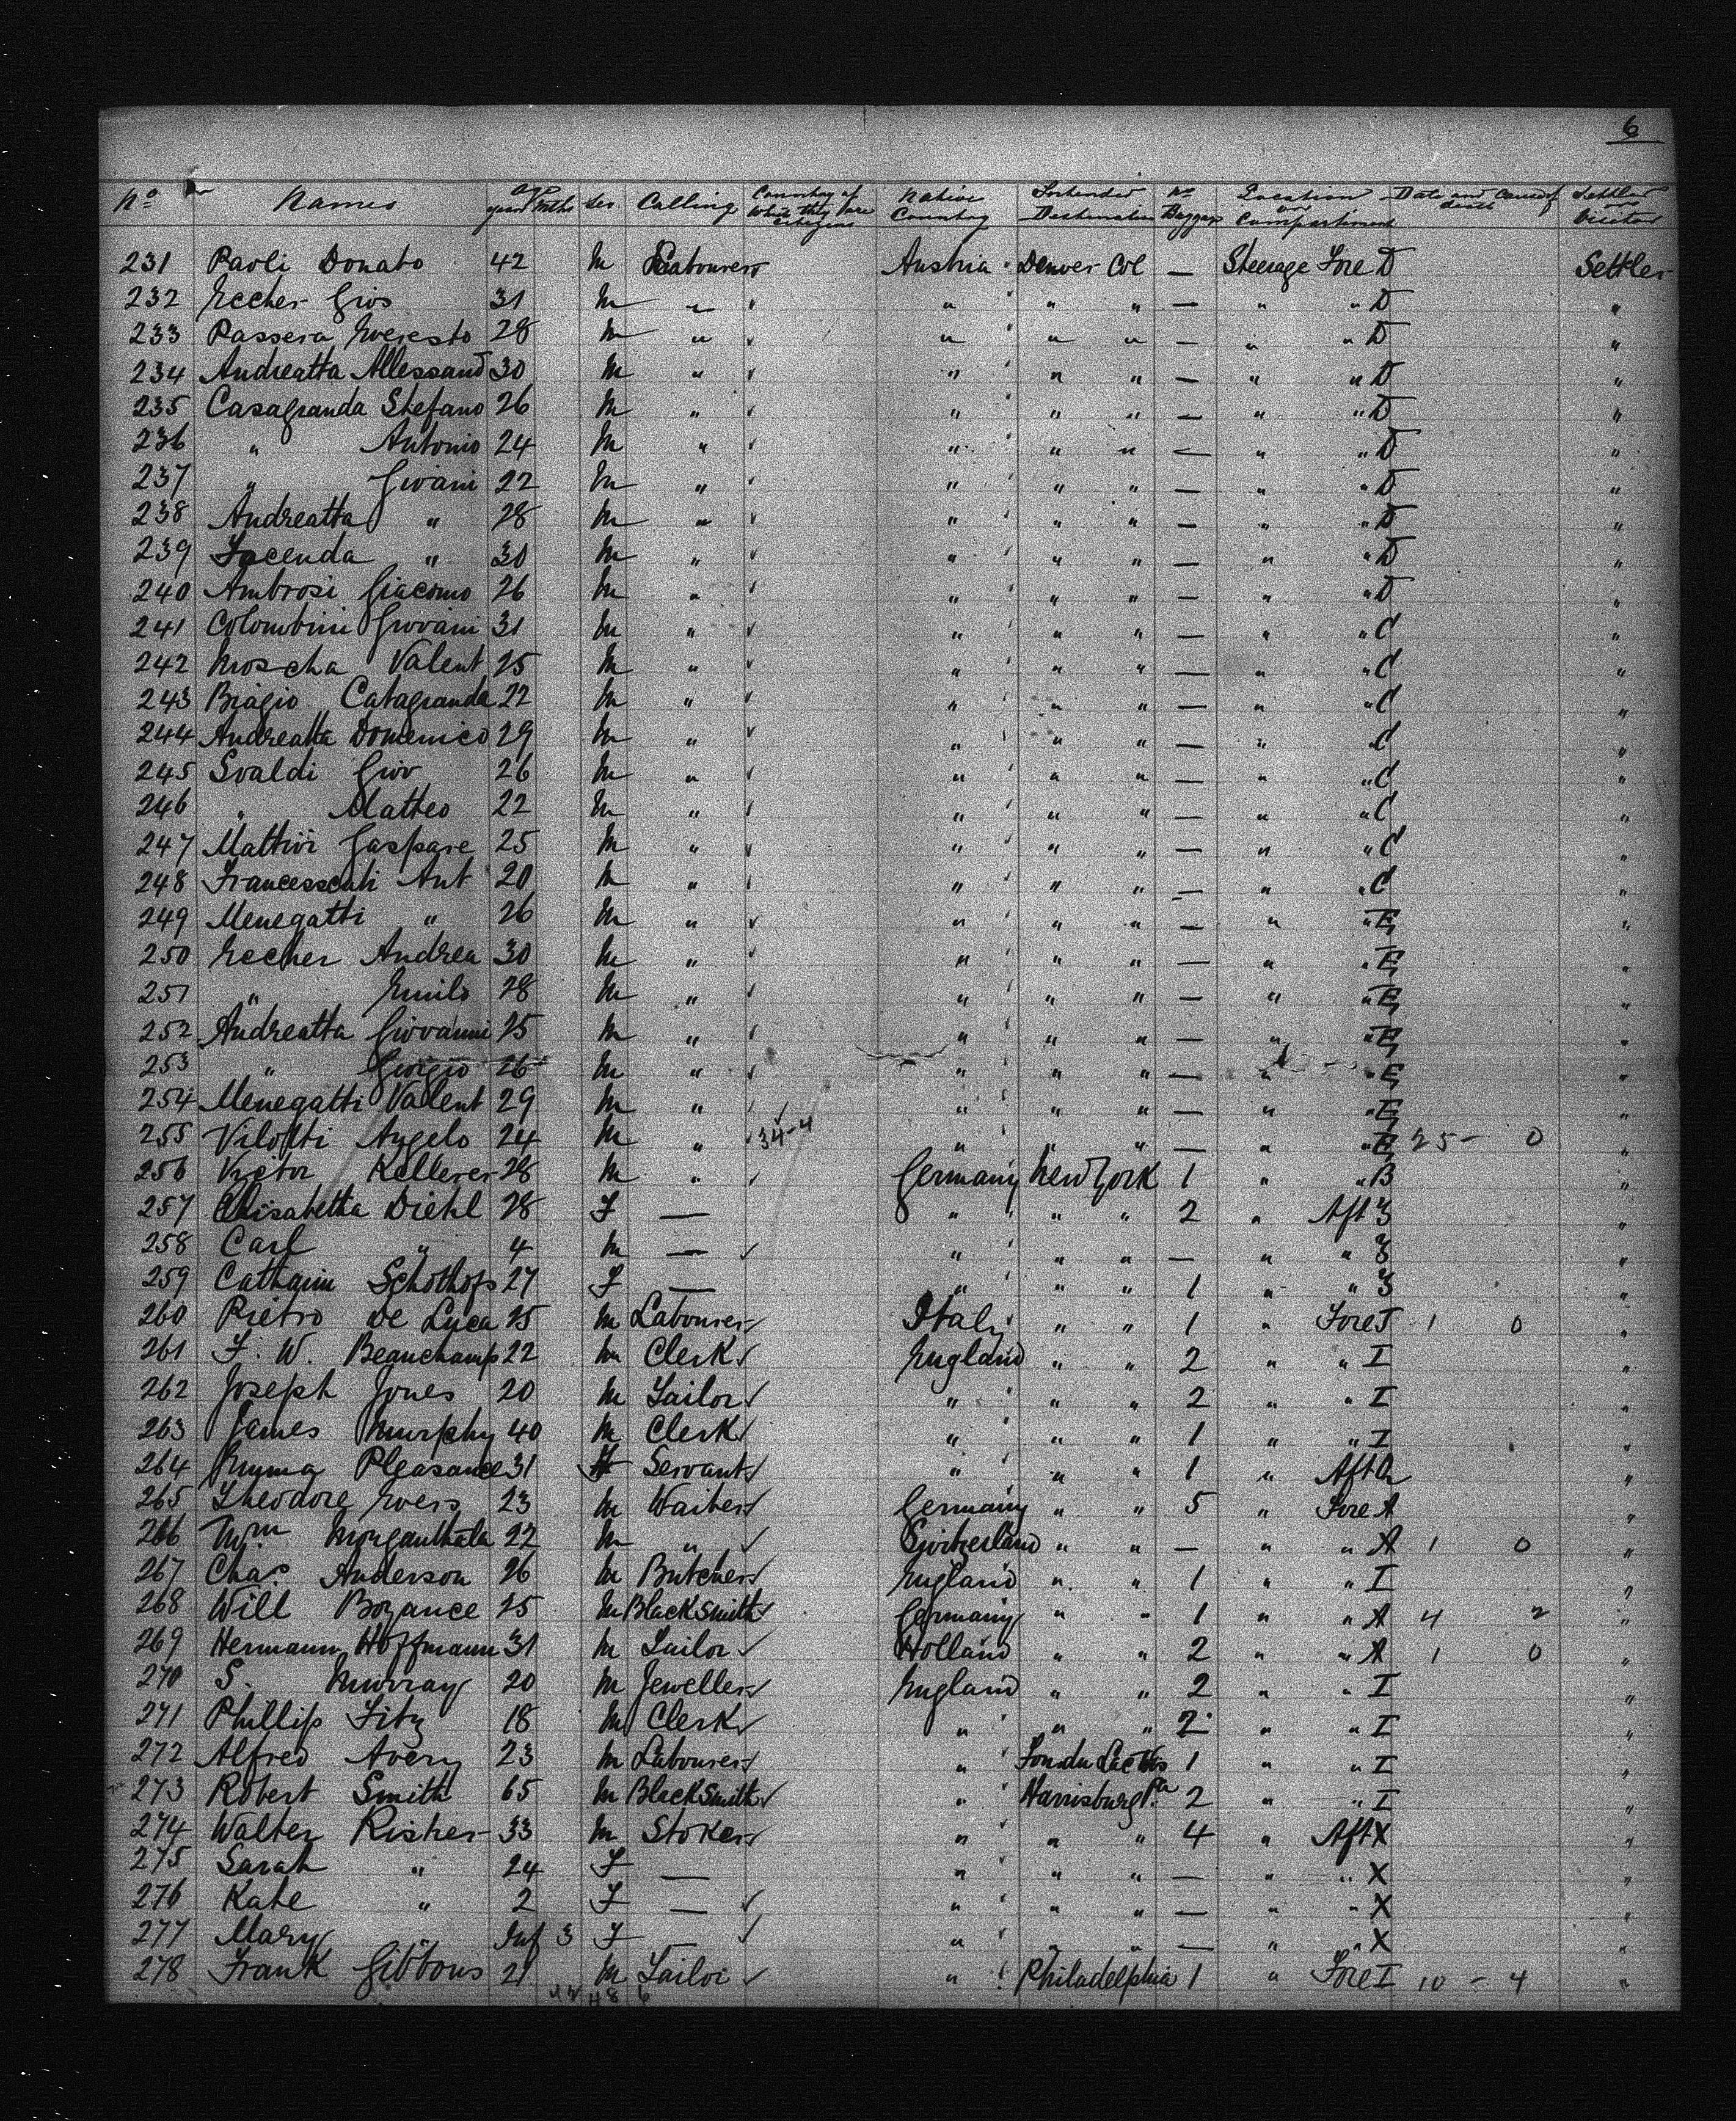 6
No Names Age years Mths Sex Calling Country of which they are citizens Native Country Intended Destination No Baggage Location or Compartment Date and Cause of death Settler or Visitor
231 Paoli Donato 42 M Labourer Austria Denver Col — Steerage Fore D Settler
232 Eccher Gios 31 M " " " " — " " D "
233 Passera Everesto 28 M " " " " — " " D "
234 Andreatta Allessand 30 M " " " " — " " D "
235 Casagranda Stefano 26 M " " " " — " " D "
236 " Antonio 24 M " " " " — " " D "
237 " Givani 22 M " " " " — " " D "
238 Andreatta " 28 M " " " " — " " D "
239 Facenda " 30 M " " " " — " " D "
240 Ambrosi Giacomo 26 M " " " " — " " D "
241 Colombini Giovani 31 M " " " " — " " C "
242 Moscha Valent 25 M " " " " — " " C "
243 Biagio Catagranda 22 M " " " " — " " C "
244 Andreatta Domenico 29 M " " " " — " " C "
245 Svaldi Giov 26 M " " " " — " " C "
246 " Matteo 22 M " " " " — " " C "
247 Mattivi Gaspare 25 M " " " " — " " C "
248 Francesscati Ant 20 M " " " " — " " C "
249 Menegatti " 26 M " " " " — " " E "
250 Eccher Andrea 30 M " " " " — " " E "
251 " Emilo 28 M " " " " — " " E "
252 Andreatta Giovanni 25 M " " " " — " " E "
253 " Giorgio 26 M " " " " — " " E "
254 Menegatti Valent 29 M " " " " — " " E "
255 Angelo 24 M " 34-4 " " " — " " E 25 - 0 "
256 Victor Kellerer 28 M " Germany New York 1 " " B "
257 Elisabetha Diehl 28 F — " " " 2 " Aft 3 "
258 Carl " 4 M — " " " — " " 3 "
259 Catharin Schothofs 27 F — " " " 1 " " 3 "
260 Pietro De Luca 25 M Labourer Italy " " 1 " Fore J 1 0 "
261 F. W. Beauchamp 22 M Clerk England " " 2 " " I "
262 Joseph Jones 20 M Sailor " " " 2 " " I "
263 James Murphy 40 M Clerk " " " 1 " " I "
264 Emma Pleasance 31 F Servant " " " 1 " Aft Q "
265 Theodore Evers 23 M Waiter Germany " " 5 " Fore A "
266 Wm Morganthala 22 M " Switzerland " " — " " A 1 0 "
267 Chas Anderson 26 M Butcher England " " 1 " " I "
268 Will Bozance 25 M Blacksmith Germany " " 1 " " A 4 2 "
269 Hermann Hoffmann 31 M Sailor Holland " " 2 " " A 1 0 "
270 S. Murray 20 M Jeweller England " " 2 " " I "
271 Phillip Fitz 18 M Clerk " " " 2 " " I "
272 Alfred Avery 23 M Labourer " Fondu Lac Wis 1 " " I "
273 Robert Smith 65 M Blacksmith " Harrisburg Pa 2 " " I "
274 Walter Risher 33 M Stoker " " " 4 " Aft X "
275 Sarah " 24 F — " " " — " " X "
276 Kate " 2 F — " " " — " " X "
277 Mary " Inf 3 F — " " " — " " X "
278 Frank Gibbons 21 M Sailor " Philadelphia 1 " Fore I 10 - 4 "
48 6